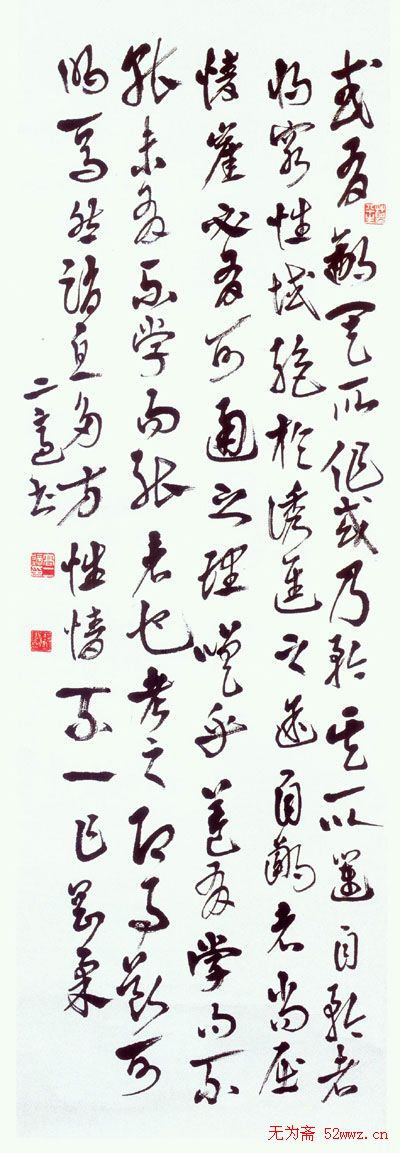 或有鄙其所作或乃矜其所運自矜者
將窮性域絕於誘進之途自鄙者尚屈
情崖必有可通之理嗟乎蓋有學而不
能未有不學而能者也考之即事斷可
明焉然多方性情不一乍剛柔
二適書
无为斋 52wwz.cn